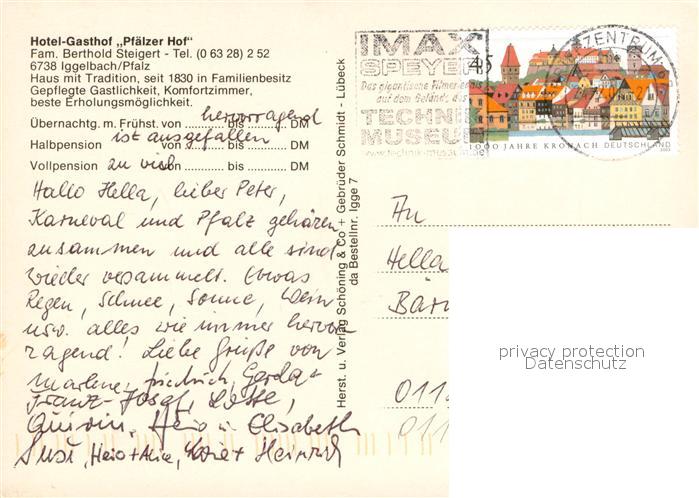 Hotel-Gasthof „Pfälzer Hof"
Fam. Berthold Steigert - Tel. (0 63 28) 2 52
6738 Iggelbach/Pfalz
Haus mit Tradition, seit 1830 in Familienbesitz
Gepflegte Gastlichkeit, Komfortzimmer,
beste Erholungsmöglichkeit.
hervorragend
Übernachtg. m. Frühst. von .......... bis .......... DM
ist ausgefallen
Halbpension von .......... bis .......... DM
zu viel
Vollpension von .......... bis .......... DM
Hallo Hella, lieber Peter,
Karneval und Pfalz gehören
zusammen und alle sind
wieder versammelt. Etwas
Regen, Schnee, Sonne, Wein
usw. alles wie immer hervor-
ragend! Liebe Grüße von
Marlene, Friedrich, Gerda +
Franz-Josef, Lotte,
Quirin, Heio u. Elisabeth
Susi, Heio + Alice, + Heinrich
Herst. u. Verlag Schöning & Co + Gebrüder Schmidt - Lübeck
da Bestellnr. Igge 7
IMAX
SPEYER
Das gigantische Filmerlebnis
auf dem Gelände des
TECHNIK
MUSEUM
www.technik-museum.de
ZENTRUM
45
1000 JAHRE KRONACH DEUTSCHLAND
2003
An
Hella
0112
011
privacy protection
Datenschutz